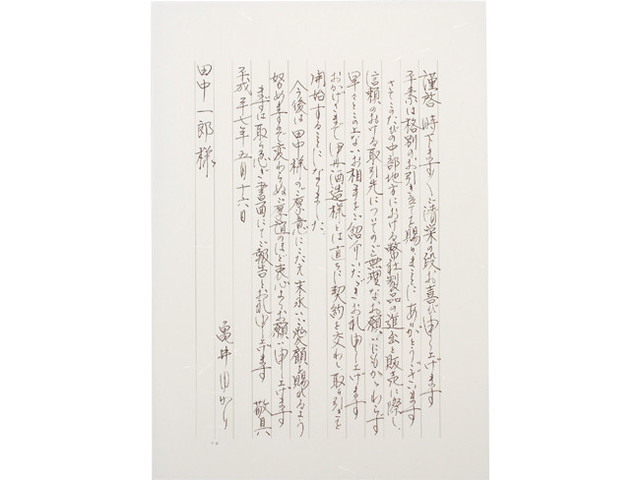 謹啓 時下ますますご清栄の段お喜び申し上げます
平素は格別のお引き立てを賜りまことにありがとうございます
さてこのたびの中部地方における弊社製品の進出と販売に際し、
信頼のおける取引先についてのご無理なお願いにもかかわらず
早々にこの上ないお相手をご紹介いただきお礼申し上げます
おかげさまで伊丹酒造様とは直ちに契約を交わし取り引きを
開始することになりました
今後は田中様のご厚意にこたえ末永いご愛顧を賜れるよう
努めますので変わらぬご厚誼のほど衷心よりお願い申し上げます
まずは取り急ぎ書面にてご報告とお礼申し上げます 敬具
平成 年七年五月十六日
亀井ゆかり
田中一郎様